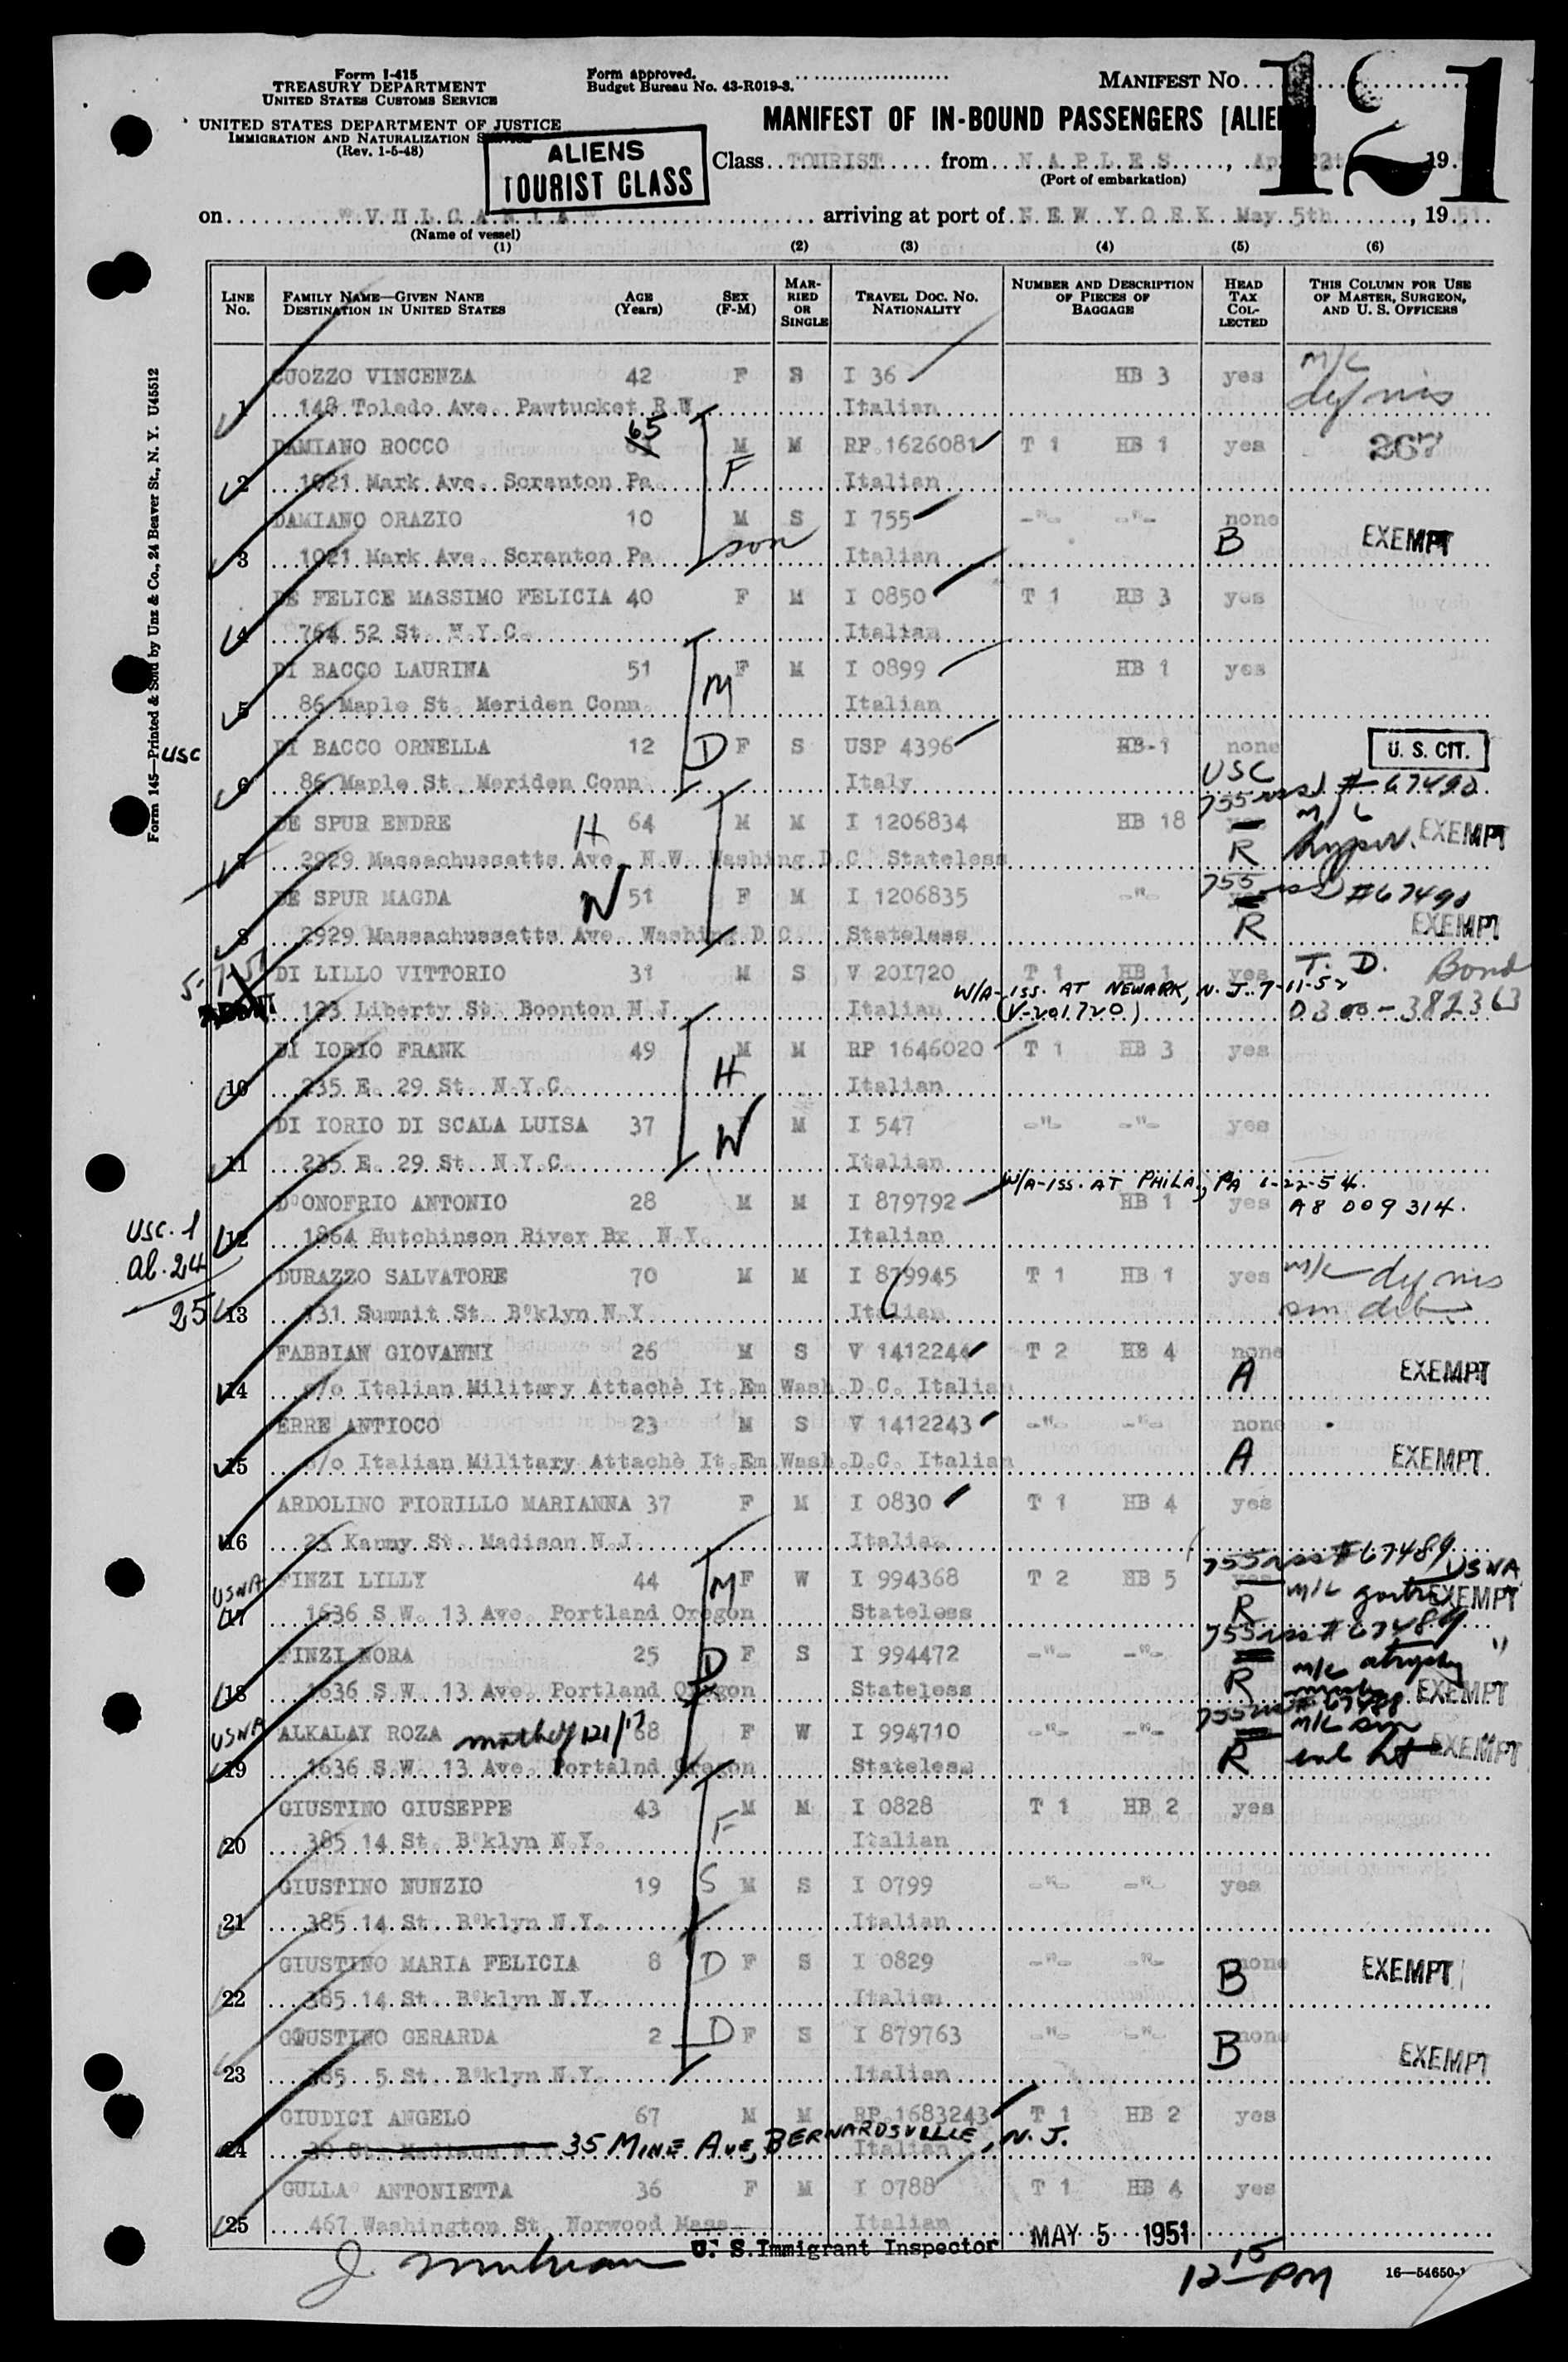 Form I-415
TREASURY DEPARTMENT
UNITED STATES CUSTOMS SERVICE
UNITED STATES DEPARTMENT OF JUSTICE
IMMIGRATION AND NATURALIZATION
(Rev. 1-5-48)
Form approved.
Budget Bureau No. 43-R019-3.
MANIFEST No.
121
MANIFEST OF IN-BOUND PASSENGERS [ALIE
ALIENS
TOURIST CLASS
Class TOURIST from N A P L E S, 19
(Port of embarkation)
on "V U L C A N I A" arriving at port of N E W Y O R K May 5th, 1951
(Name of vessel)
(1) (2) (3) (4) (5) (6)
LINE No. FAMILY NAME—GIVEN NANE DESTINATION IN UNITED STATES AGE (Years) SEX (F-M) MARRIED OR SINGLE TRAVEL DOC. NO. NATIONALITY NUMBER AND DESCRIPTION OF PIECES OF BAGGAGE HEAD TAX COLLECTED THIS COLUMN FOR USE OF MASTER, SURGEON, AND U. S. OFFICERS
Form 145—Printed & Sold by Unz & Co., 24 Beaver St., N. Y. U45512
CUOZZO VINCENZA 42 F S I 36 HB 3 yes m/c
1 148 Toledo Ave. Pawtucket R.I. Italian
DAMIANO ROCCO 65 M M RP.1626081 T 1 HB 1 yes 267
2 1021 Mark Ave. Scranton Pa F Italian
DAMIANO ORAZIO 10 M S I 755 -"- -"- none EXEMPT
3 1021 Mark Ave. Scranton Pa son Italian B
DE FELICE MASSIMO FELICIA 40 F M I 0850 T 1 HB 3 yes
4 764 52 St. N.Y.C. Italian
DI BACCO LAURINA 51 F M I 0899 HB 1 yes
5 86 Maple St. Meriden Conn. M Italian
USC DI BACCO ORNELLA 12 D F S USP 4396 HB-1 none U. S. CIT.
6 86 Maple St. Meriden Conn Italy USC
755 #67490
DE SPUR ENDRE H 64 M M I 1206834 HB 18 yes m/c EXEMPT
7 2929 Massachussetts Ave. N.W. Washing.D C Stateless R
755 #67490
DE SPUR MAGDA W 51 F M I 1206835 -"- yes EXEMPT
8 2929 Massachussetts Ave. Washing.D C. Stateless R
DI LILLO VITTORIO 31 M S V 201720 T 1 HB 1 yes T. D. Bond
W/A-ISS. AT NEWARK, N. J. 7-11-52
(V-201720)
5-7-51 ADMIT 123 Liberty St. Boonton N J. Italian 0300-382363
DI IORIO FRANK 49 M M RP 1646020 T 1 HB 3 yes
10 235 E. 29 St. N.Y.C. H Italian
DI IORIO DI SCALA LUISA 37 M I 547 -"- -"- yes
11 235 E. 29 St. N.Y.C. W Italian
W/A-ISS. AT PHILA., PA 1-22-54.
D'ONOFRIO ANTONIO 28 M M I 879792 HB 1 yes A8 009 314.
12 1864 Hutchinson River Bx N.Y. Italian
usc. 1
al. 24
25
DURAZZO SALVATORE 70 M M I 879945 T 1 HB 1 yes m/c
13 131 Summit St. B°klyn N.Y. Italian
FABBIAN GIOVANNI 26 M S V 1412244 T 2 HB 4 none EXEMPT
14 c/o Italian Military Attachè It.Em.Wash.D.C. Italian A
ERRE ANTIOCO 23 M S V 1412243 -"- -"- none
15 c/o Italian Military Attachè It.Em.Wash.D.C. Italian A EXEMPT
ARDOLINO FIORILLO MARIANNA 37 F M I 0830 T 1 HB 4 yes
16 23 Kanny St. Madison N.J. Italian
755 #67489 USNA
USNA FINZI LILLY 44 M F W I 994368 T 2 HB 5 yes m/c EXEMPT
17 1636 S.W. 13 Ave. Portland Oregon Stateless R
755 # 67489
FINZI NORA 25 D F S I 994472 -"- -"- m/c "
18 1636 S.W. 13 Ave. Portland Oregon Stateless R EXEMPT
755 # 67488
USNA ALKALAY ROZA mother 121/17 68 F W I 994710 -"- -"- m/c
19 1636 S.W. 13 Ave. Portalnd Oregon Stateless R EXEMPT
GIUSTINO GIUSEPPE 43 M M I 0828 T 1 HB 2 yes
20 385 14 St. B°klyn N.Y. F Italian
GIUSTINO NUNZIO 19 S M S I 0799 -"- -"- yes
21 385 14 St. B°klyn N.Y. Italian
GIUSTINO MARIA FELICIA 8 D F S I 0829 -"- -"- none EXEMPT
22 385 14 St. B°klyn N.Y. Italian B
GIUSTINO GERARDA 2 D F S I 879763 -"- -"- none
23 385 5 St. B°klyn N.Y. Italian B EXEMPT
GIUDICI ANGELO 67 M M RP.1683243 T 1 HB 2 yes
24 35 MINE AVE, BERNARDSVILLE, N. J. Italian
GULLA' ANTONIETTA 36 F M I 0788 T 1 HB 4 yes
25 467 Washington St. Norwood Mass. Italian
U. S. Immigrant Inspector MAY 5 1951
12 15 PM
16—54650-1